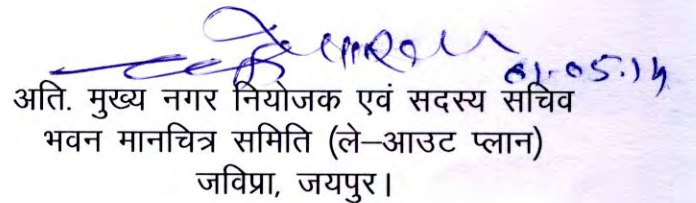 01.05.14
अति. मुख्य नगर नियोजक एवं सदस्य सचिव
भवन मानचित्र समिति (ले–आउट प्लान)
जविप्रा, जयपुर।